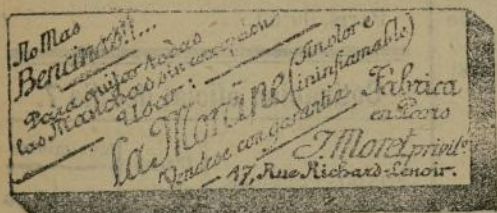 No Mas
Bencinas!!...
Para quitar todas
las Manchas sin excepción
Usar:
la Morétine (Sin olor e
ininflamable)
Vendese con garantía
Fabrica
en Paris
J. Moret, privilo.
47, Rue Richard-Lenoir.